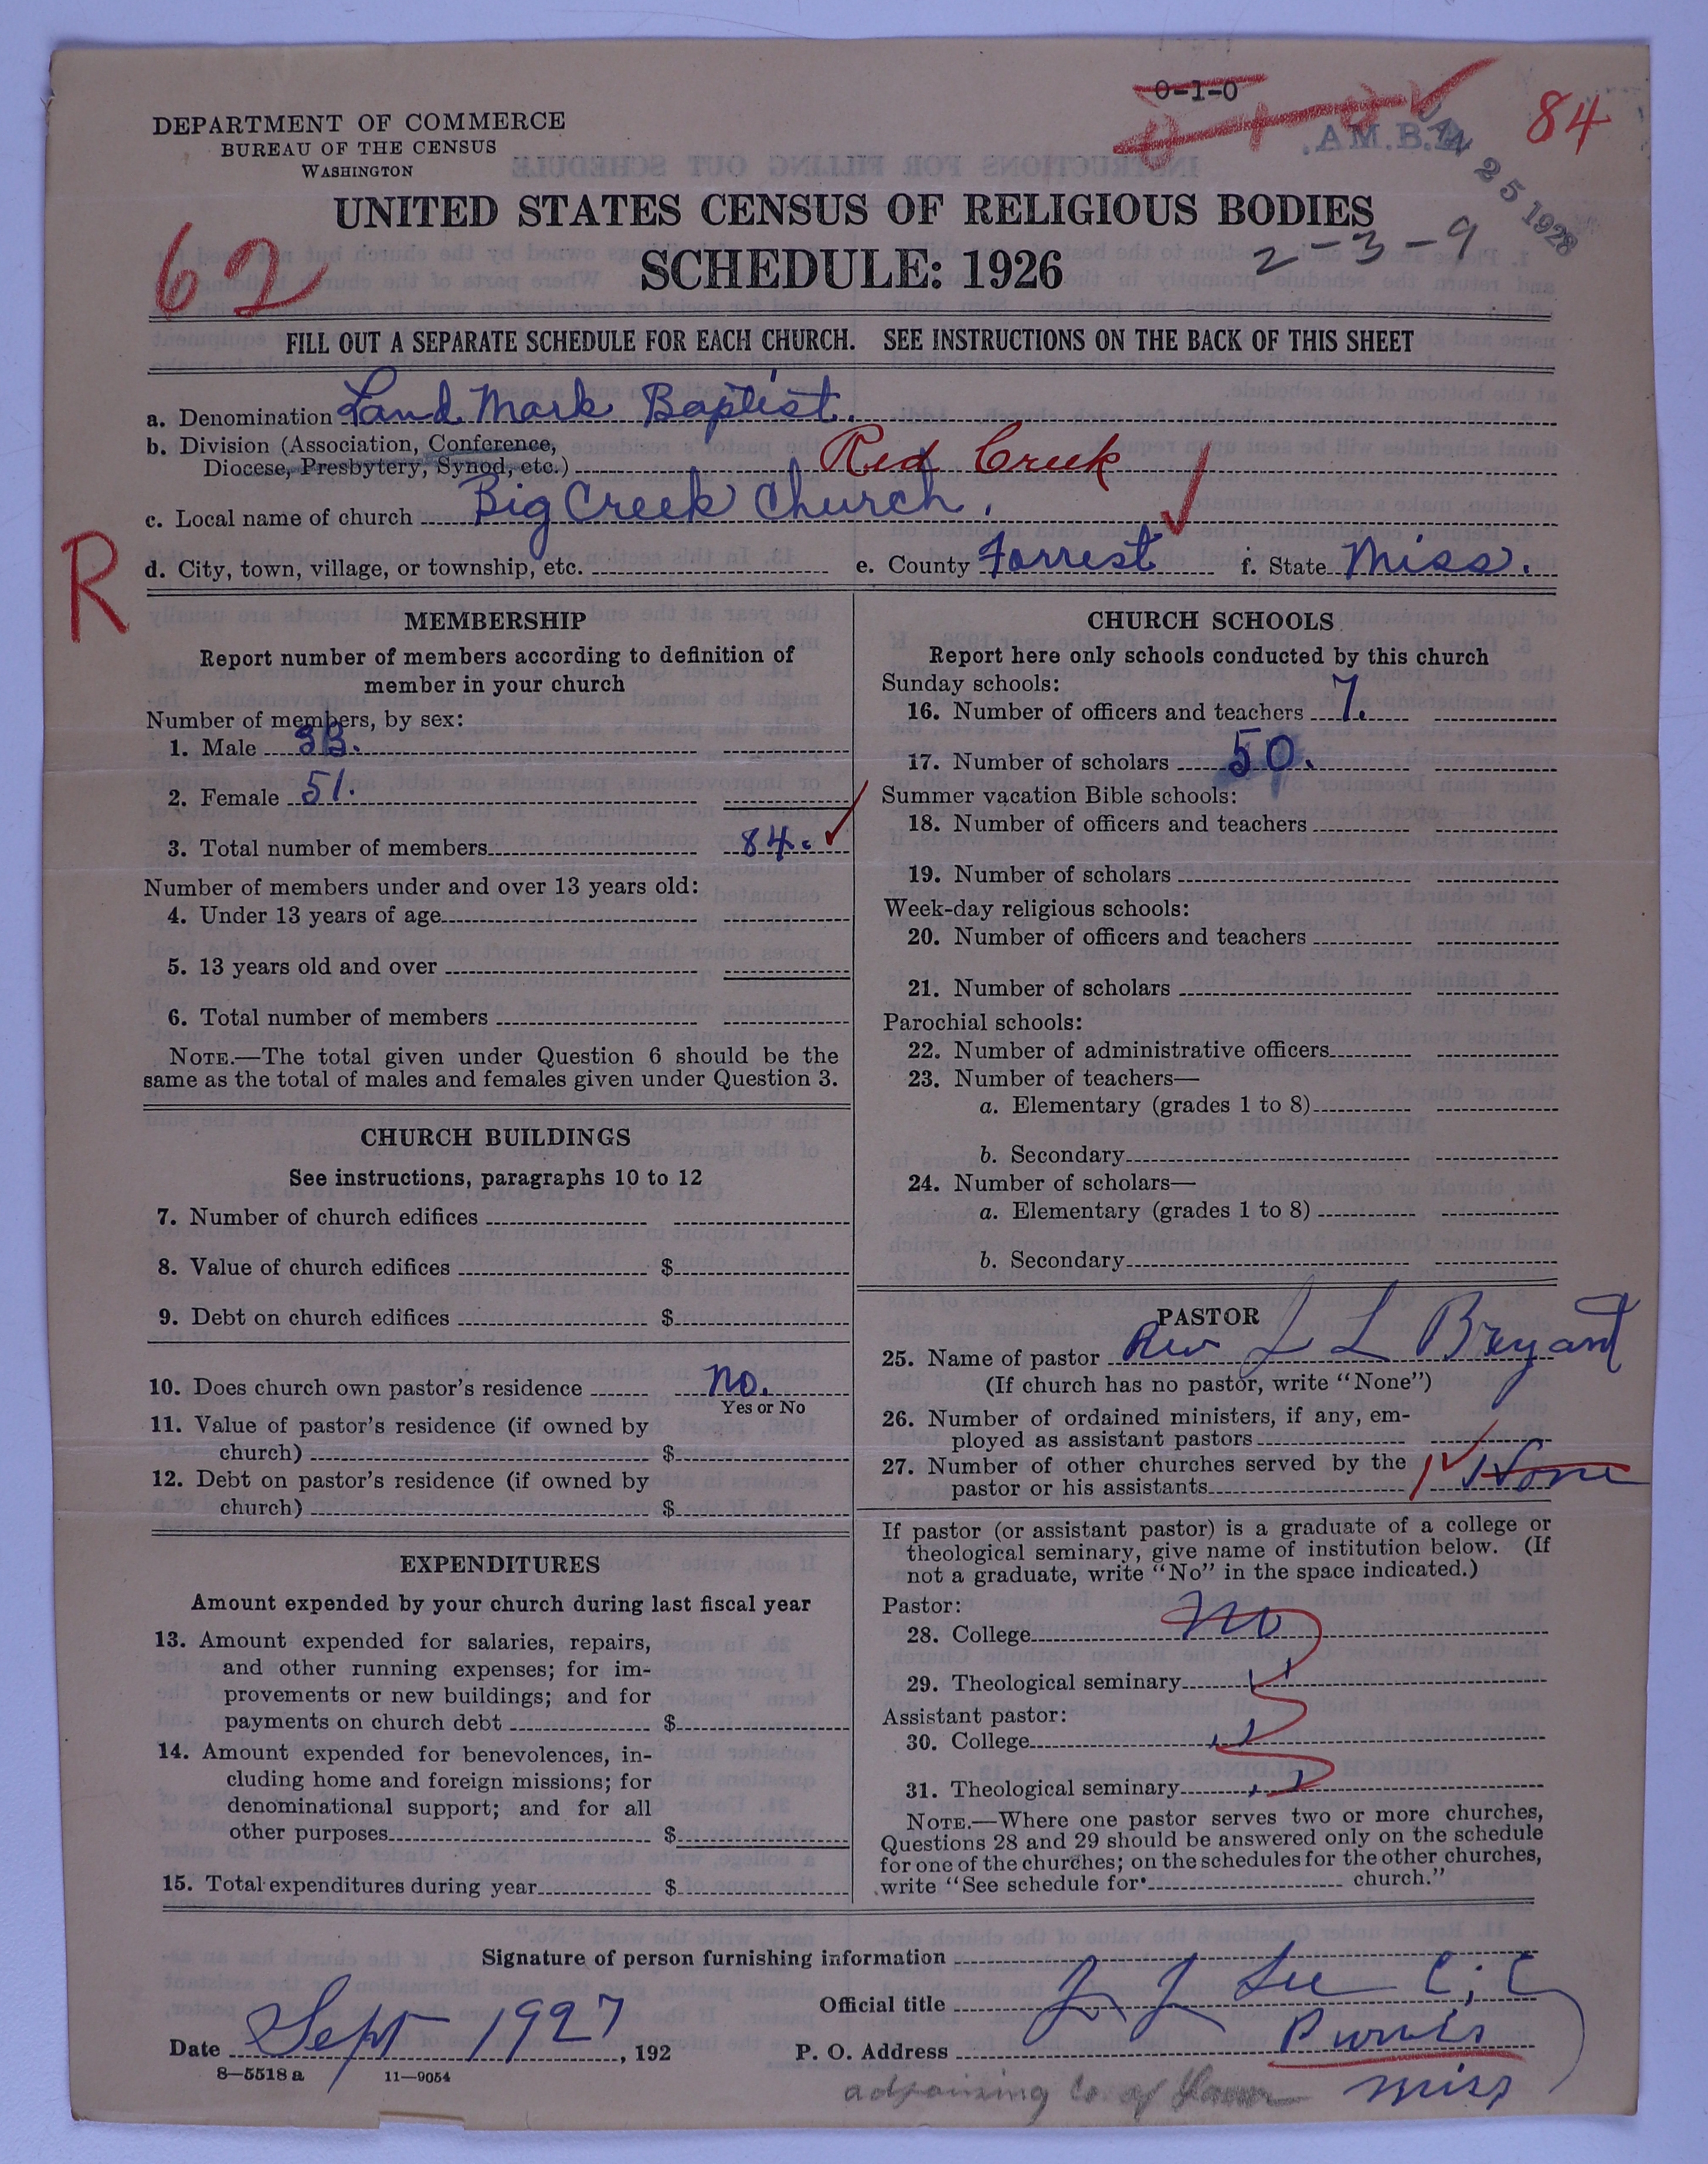 0-1-0
0-1-0
A.M.B.A.
JAN 25 1928
84
DEPARTMENT OF COMMERCE
BUREAU OF THE CENSUS
WASHINGTON
UNITED STATES CENSUS OF RELIGIOUS BODIES
62
SCHEDULE: 1926
2-3-9
FILL OUT A SEPARATE SCHEDULE FOR EACH CHURCH. SEE INSTRUCTIONS ON THE BACK OF THIS SHEET
a. Denomination Land Mark Baptist.
b. Division (Association, Conference,
Diocese, Presbytery, Synod, etc.) Red Creek
c. Local name of church Big Creek Church.
R
d. City, town, village, or township, etc. e. County Forrest f. State Miss.
MEMBERSHIP
Report number of members according to definition of
member in your church
Number of members, by sex:
1. Male 33.
2. Female 51.
3. Total number of members 84.
Number of members under and over 13 years old:
4. Under 13 years of age
5. 13 years old and over
6. Total number of members
NOTE.—The total given under Question 6 should be the
same as the total of males and females given under Question 3.
CHURCH BUILDINGS
See instructions, paragraphs 10 to 12
7. Number of church edifices
8. Value of church edifices $
9. Debt on church edifices $
10. Does church own pastor's residence no.
Yes or No
11. Value of pastor's residence (if owned by
church) $
12. Debt on pastor's residence (if owned by
church) $
EXPENDITURES
Amount expended by your church during last fiscal year
13. Amount expended for salaries, repairs,
and other running expenses; for im-
provements or new buildings; and for
payments on church debt $
14. Amount expended for benevolences, in-
cluding home and foreign missions; for
denominational support; and for all
other purposes $
15. Total expenditures during year $
CHURCH SCHOOLS
Report here only schools conducted by this church
Sunday schools:
16. Number of officers and teachers 7.
17. Number of scholars 50.
Summer vacation Bible schools:
18. Number of officers and teachers
19. Number of scholars
Week-day religious schools:
20. Number of officers and teachers
21. Number of scholars
Parochial schools:
22. Number of administrative officers
23. Number of teachers—
a. Elementary (grades 1 to 8)
b. Secondary
24. Number of scholars—
a. Elementary (grades 1 to 8)
b. Secondary
PASTOR
25. Name of pastor Rev L L Bryant
(If church has no pastor, write "None")
26. Number of ordained ministers, if any, em-
ployed as assistant pastors
27. Number of other churches served by the
pastor or his assistants 1 None
If pastor (or assistant pastor) is a graduate of a college or
theological seminary, give name of institution below. (If
not a graduate, write "No" in the space indicated.)
Pastor:
28. College no
29. Theological seminary "
Assistant pastor:
30. College "
31. Theological seminary "
NOTE.—Where one pastor serves two or more churches,
Questions 28 and 29 should be answered only on the schedule
for one of the churches; on the schedules for the other churches,
write "See schedule for church."
Signature of person furnishing information
Official title J J Lee C; C
Date Sept 1927, 192 P. O. Address Purvis
miss
8—5518 a 11—9054
adjoining Co. of Lamar